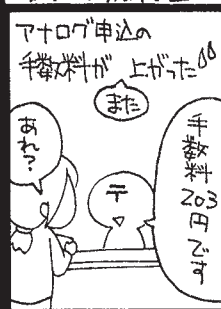 アナログ申込の
手数料が上がった
また
手数料203円です
あれ?
〒